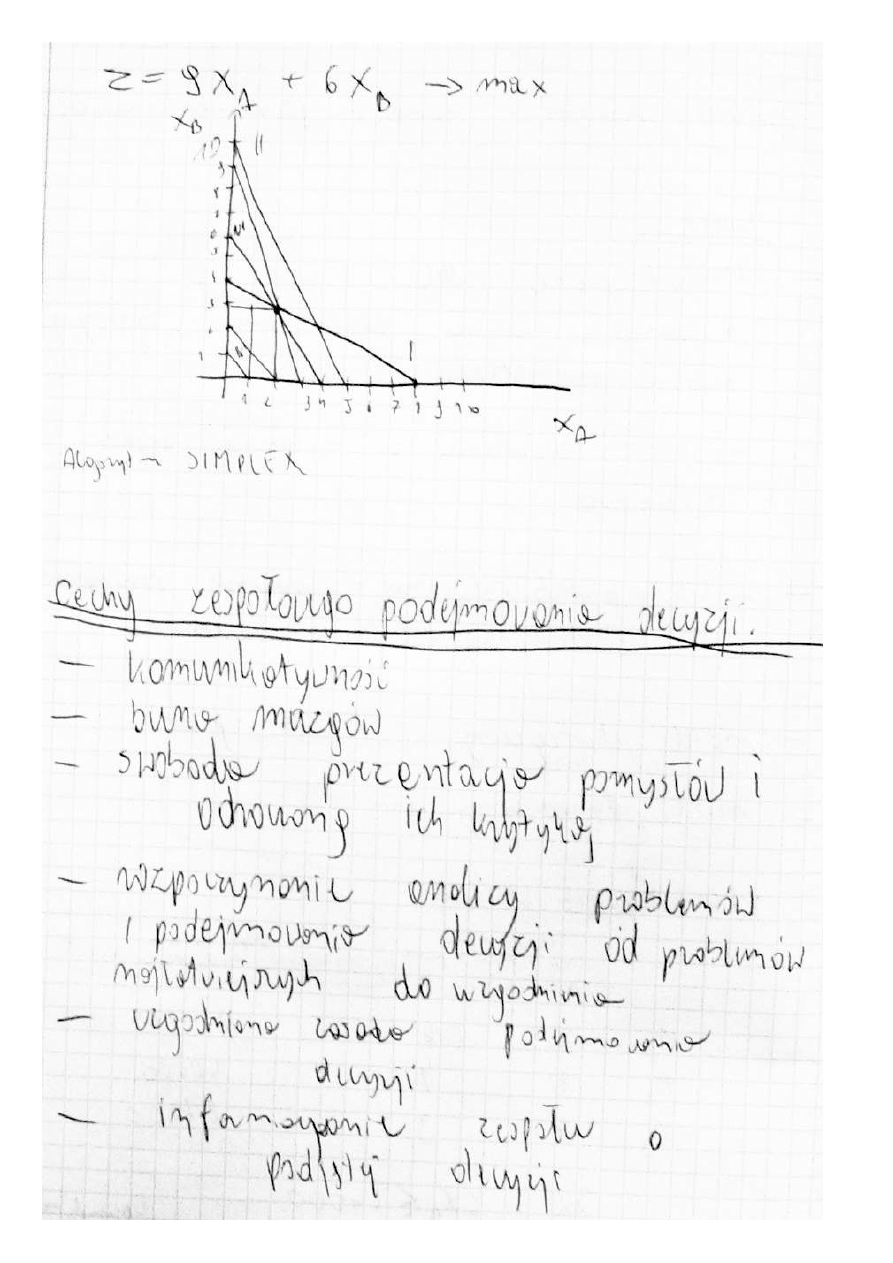 z = 9 X_A + 6 X_B → max
X_B
10 11
9
8
6
5
4
3
1
1 2 3 4 5 6 7 8 9 10
X_A
Algorytm SIMPLEX
Cechy zespołowego podejmowania decyzji.
— komunikatywność
— burza mózgów
— swoboda prezentacja pomysłów i
ochroną ich krytyką
— rozpoczynanie analizy problemów
i podejmowania decyzji od problemów
najłatwiejszych do uzgodnienia
— uzgodniona zasada podejmowania
decyzji
— informowanie zespołu o
podjętej decyzji